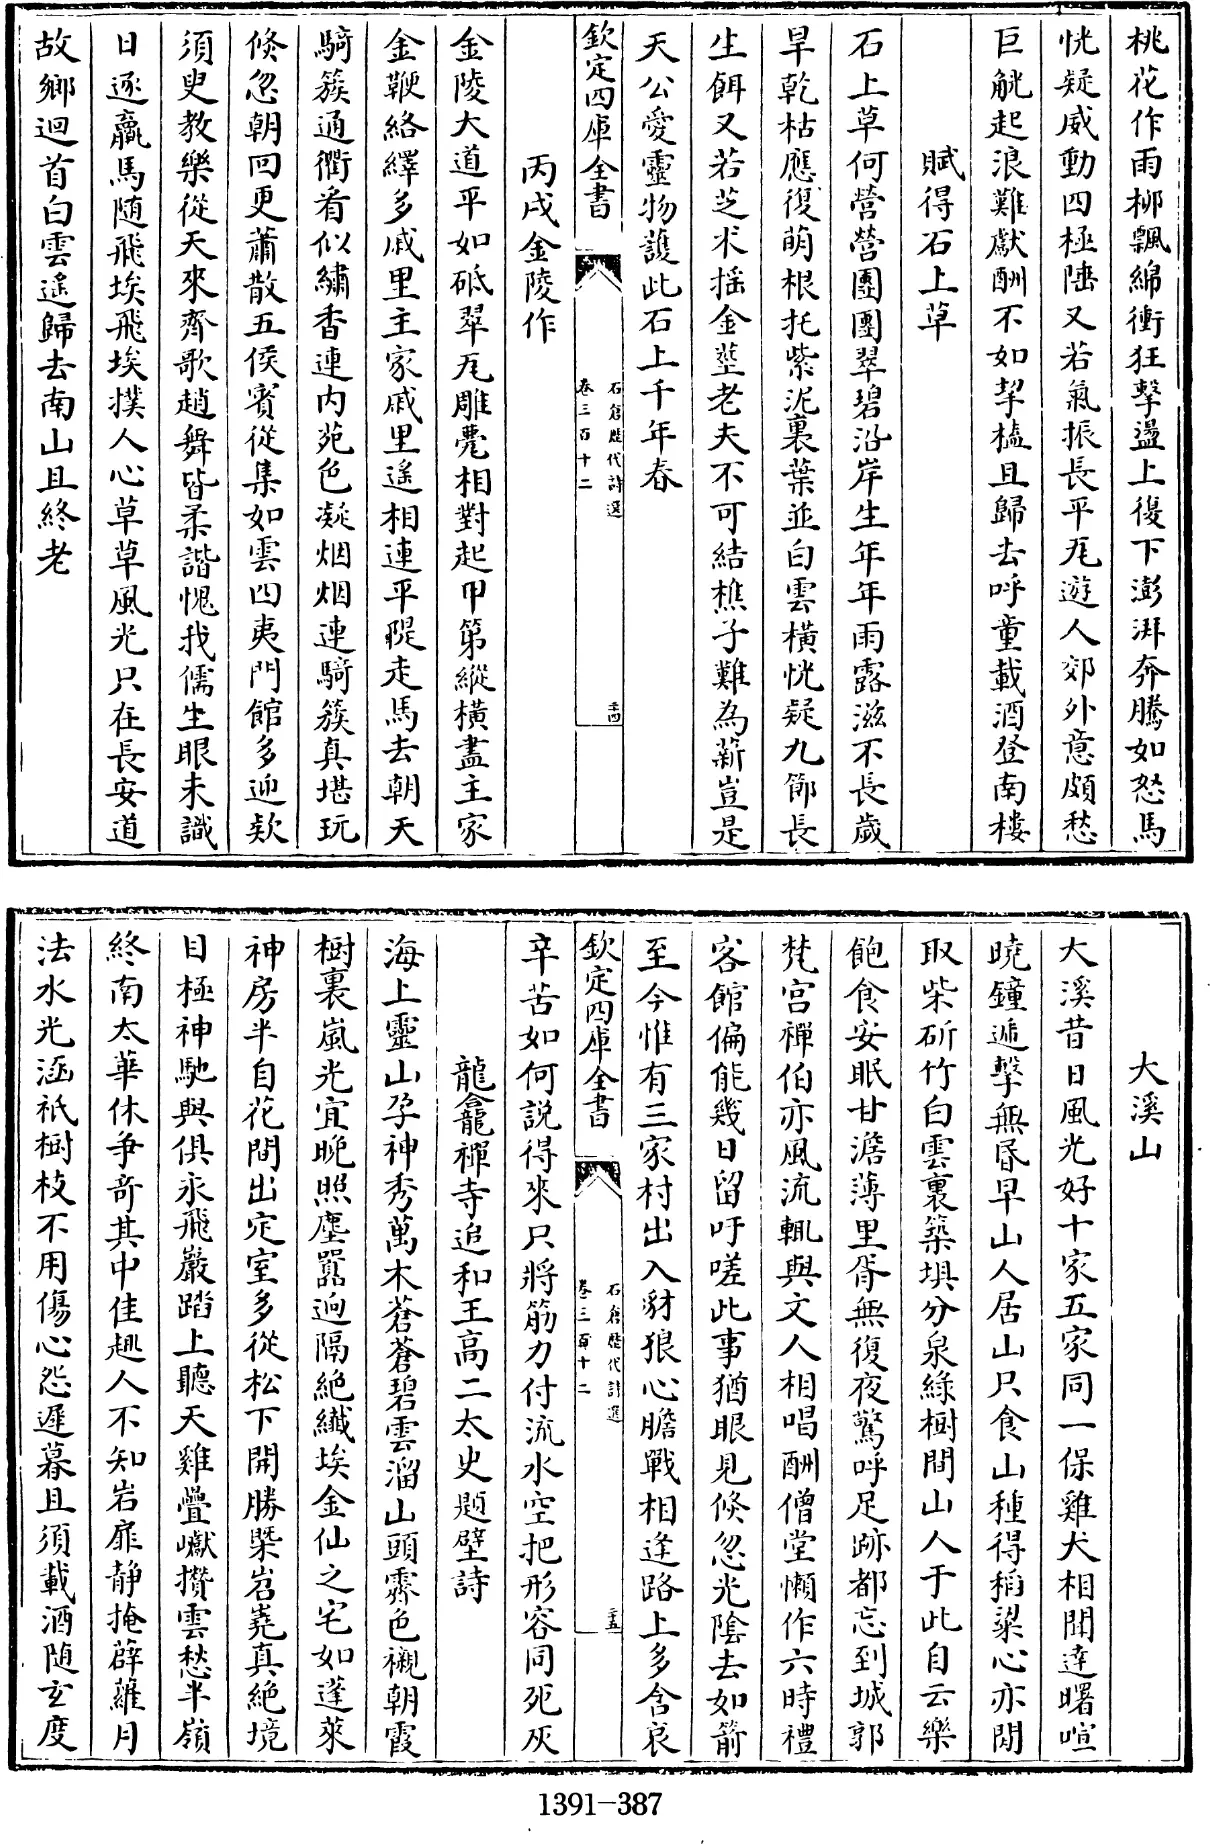 桃花作雨柳飄綿衝狂擊盪上復下澎湃奔騰如怒馬
恍疑威動四極陲又若氣振長平瓦遊人郊外意頗愁
巨觥起浪難獻酬不如挈榼且歸去呼童載酒登南樓
賦得石上草
石上草何營營團團翠碧沿岸生年年雨露滋不長歲
旱乾枯應復萌根托紫泥裏葉並白雲橫恍疑九節長
生餌又若芝术搖金莖老夫不可結樵子難為薪豈是
天公愛靈物護此石上千年春
欽定四庫全書
石倉歷代詩選
卷三百十二
二十四
丙戌金陵作
金陵大道平如砥翠瓦雕甍相對起甲第縱橫盡主家
金鞭絡繹多戚里主家戚里遙相連平隄走馬去朝天
騎簇通衢看似繡香連內苑色凝烟烟連騎簇真堪玩
倏忽朝回更蕭散五侯賓從集如雲四夷門館多迎欵
須臾教樂從天來齊歌趙舞皆柔諧愧我儒生眼未識
日逐羸馬随飛埃飛埃撲人心草草風光只在長安道
故鄉迴首白雲遙歸去南山且終老
大溪山
大溪昔日風光好十家五家同一保雞犬相聞達曙喧
曉鐘遞擊無昏早山人居山只食山種得稻粱心亦閒
取柴斫竹白雲裏築埧分泉綠樹間山人于此自云樂
飽食安眠甘澹薄里胥無復夜驚呼足跡都忘到城郭
梵宫禪伯亦風流輒與文人相唱酬僧堂懶作六時禮
客館偏能幾日留吁嗟此事猶眼見倏忽光陰去如箭
至今惟有三家村出入豺狼心膽戰相逢路上多含哀
欽定四庫全書
石倉歷代詩選
卷三百十二
二十五
辛苦如何說得來只將筋力付流水空把形容同死灰
龍龕禪寺追和王高二太史題壁詩
海上靈山孕神秀萬木蒼蒼碧雲溜山頭霽色襯朝霞
樹裏嵐光宜晚照塵囂逈隔絶纎埃金仙之宅如蓬萊
神房半自花間出定室多從松下開勝槩岧嶤真絶境
目極神馳興俱永飛巖踏上聽天雞疊巘攢雲愁半嶺
終南太華休争奇其中佳趣人不知岩扉静掩薜蘿月
法水光涵祇樹枝不用傷心怨遲暮且須載酒随玄度
1391-387